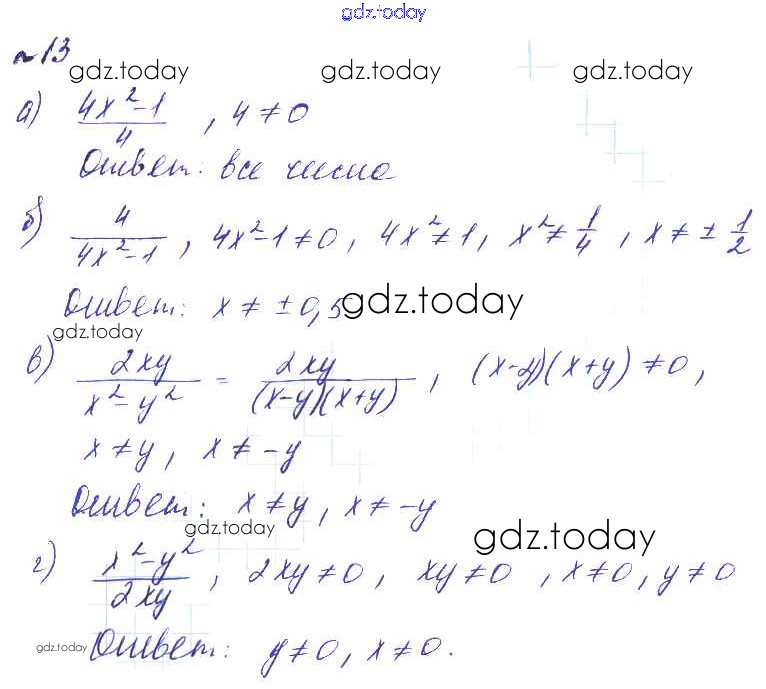 gdz.today
№13
gdz.today gdz.today gdz.today
а) (4x² - 1)/4 , 4 ≠ 0
Ответ: все числа
б) 4/(4x² - 1) , 4x² - 1 ≠ 0, 4x² ≠ 1, x² ≠ 1/4 , x ≠ ± 1/2
Ответ: x ≠ ± 0,5 gdz.today
gdz.today
в) 2xy/(x² - y²) = 2xy/((x-y)(x+y)) , (x-y)(x+y) ≠ 0,
x ≠ y, x ≠ -y
Ответ: x ≠ y, x ≠ -y
gdz.today gdz.today
г) (x² - y²)/2xy , 2xy ≠ 0, xy ≠ 0 , x ≠ 0, y ≠ 0
gdz.today Ответ: y ≠ 0, x ≠ 0.